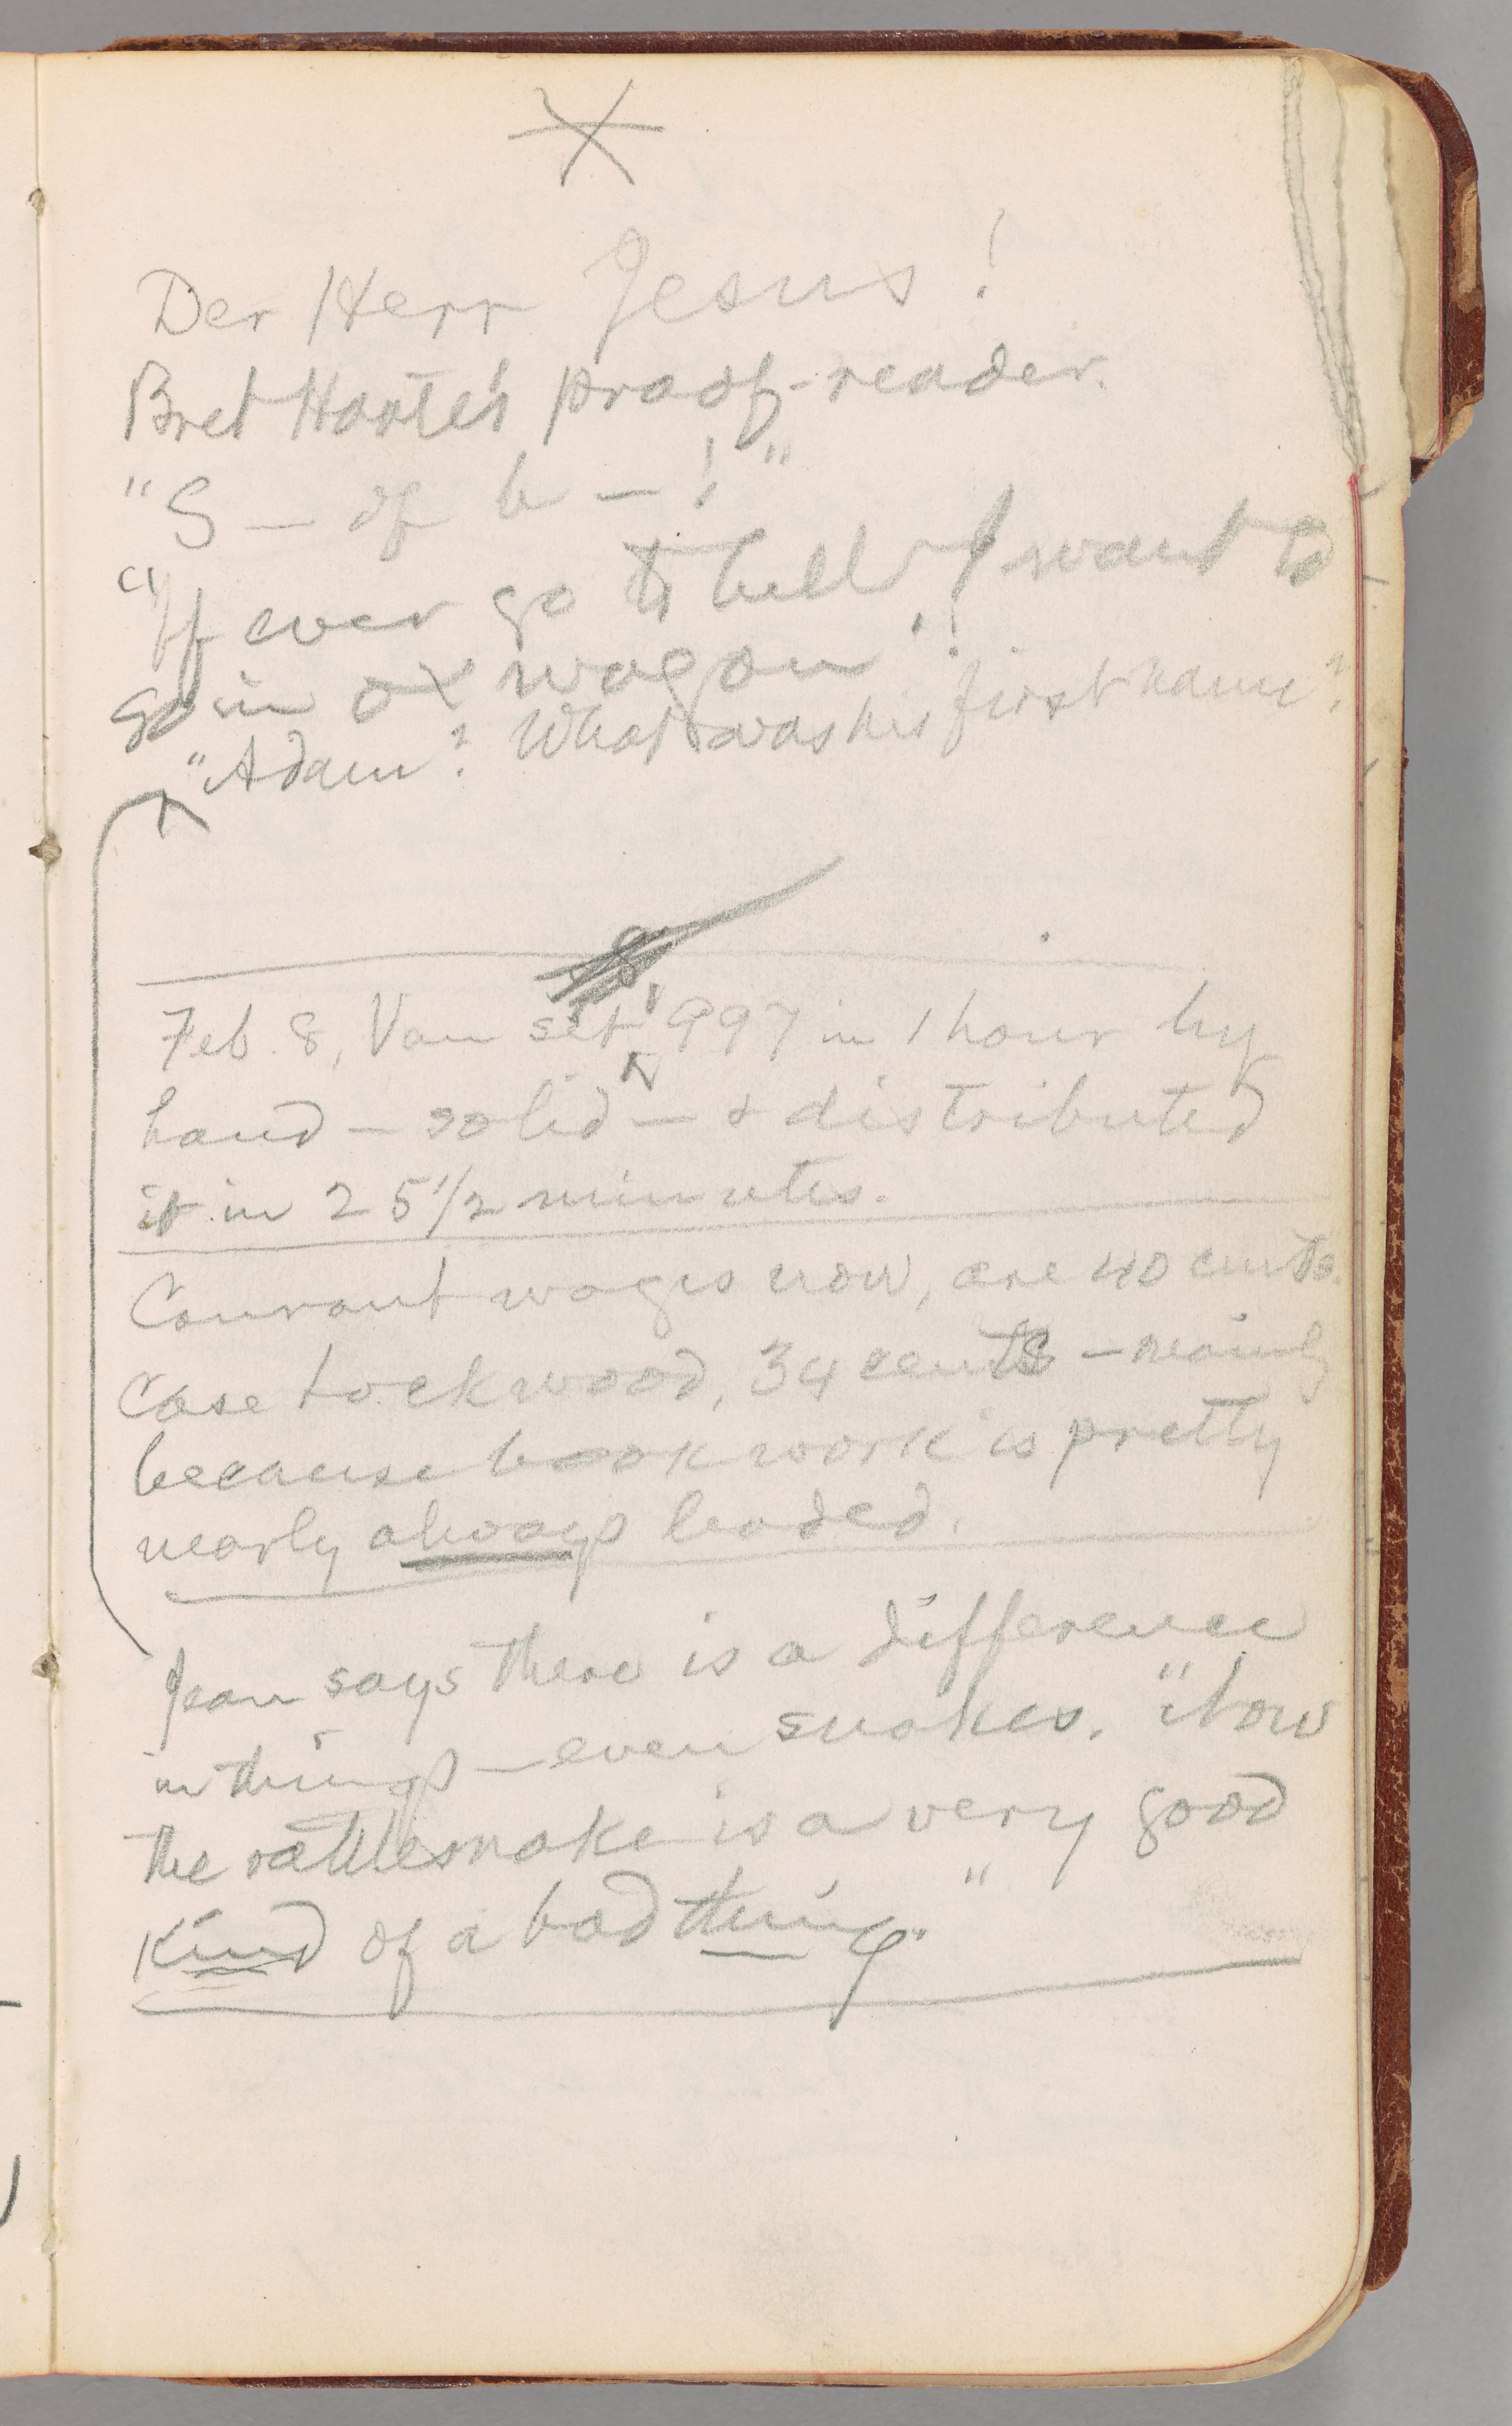 Der Herr Jesus!
Bret Harte's proof-reader.
"S — of b — !"
"If ever go to hell I want to
go in ox wagon"!
"Adam? What was his first name?
Feb. 8, Van set 997 in 1 hour by
hand — solid — & distributed
it in 25 1/2 minutes.
Courant wages now, are 40 cents.
Case Lockwood, 34 cents — mainly
because bookwork is pretty
nearly always leaded.
Jean says there is a difference
in things — even snakes. "Now
the rattlesnake is a very good
kind of a bad thing."